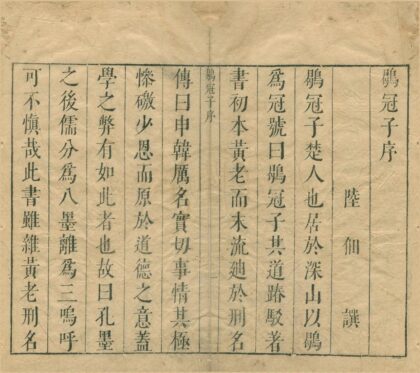 鶡冠子序
陸佃譔
鶡冠子楚人也居於深山以鶡
爲冠號曰鶡冠子其道踳駁著
書初本黃老而末流迪於刑名
鶡冠子序
傳曰申韓厲名實切事情其極
慘礉少恩而原於道德之意蓋
學之弊有如此者也故曰孔墨
之後儒分爲八墨離爲三嗚呼
可不慎哉此書雖雜黃老刑名